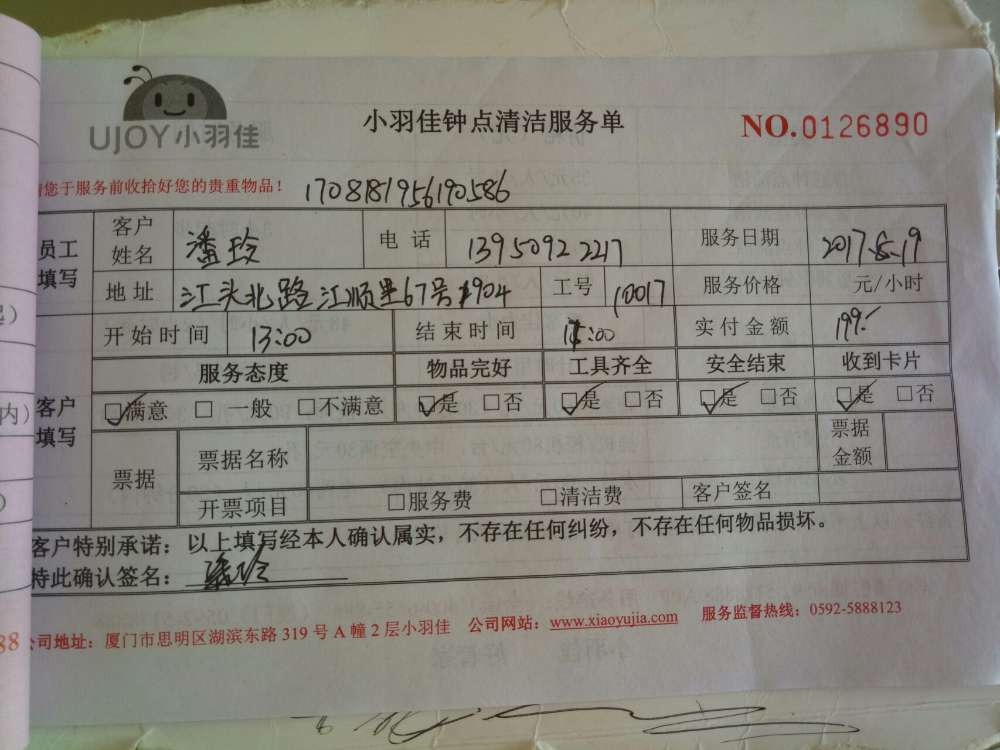 UJOY小羽佳
小羽佳钟点清洁服务单
NO.0126890
您于服务前收拾好您的贵重物品！
170818195619058б
员工填写 客户姓名 潘玲 电话 13950922217 服务日期 2017.8.19
地址 江头北路江顺里67号904 工号 10017 服务价格 元/小时
开始时间 13:00 结束时间 :00 实付金额 199.-
客户填写 服务态度 物品完好 工具齐全 安全结束 收到卡片
□满意 □一般 □不满意 □是 □否 □是 □否 □是 □否 □是 □否
票据 票据名称 票据金额
开票项目 □服务费 □清洁费 客户签名
客户特别承诺：以上填写经本人确认属实，不存在任何纠纷，不存在任何物品损坏。
特此确认签名：潘玲
公司地址：厦门市思明区湖滨东路319号A幢2层小羽佳 公司网站：www.xiaoyujia.com 服务监督热线：0592-5888123
内)
88